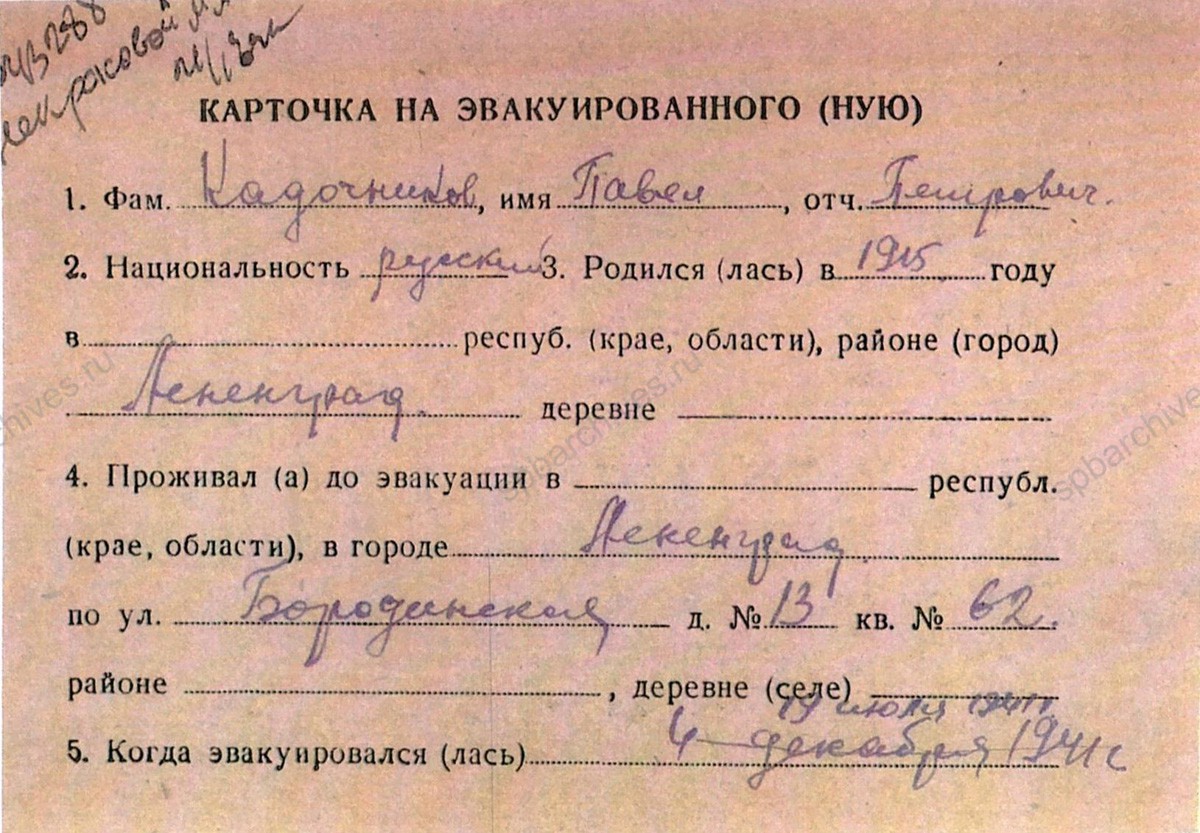 КАРТОЧКА НА ЭВАКУИРОВАННОГО (НУЮ)
1. Фам. Кадочников, имя Павел, отч. Петрович.
2. Национальность русский 3. Родился (лась) в 1915 году
в респуб. (крае, области), районе (город)
Ленинград. деревне
4. Проживал (а) до эвакуации в республ.
(крае, области), в городе Ленинград
по ул. Бородинская д. № 13 кв. № 62.
районе , деревне (селе)
19 июля 1941
5. Когда эвакуировался (лась) 4 декабря 1941 г
spbarchives.ru